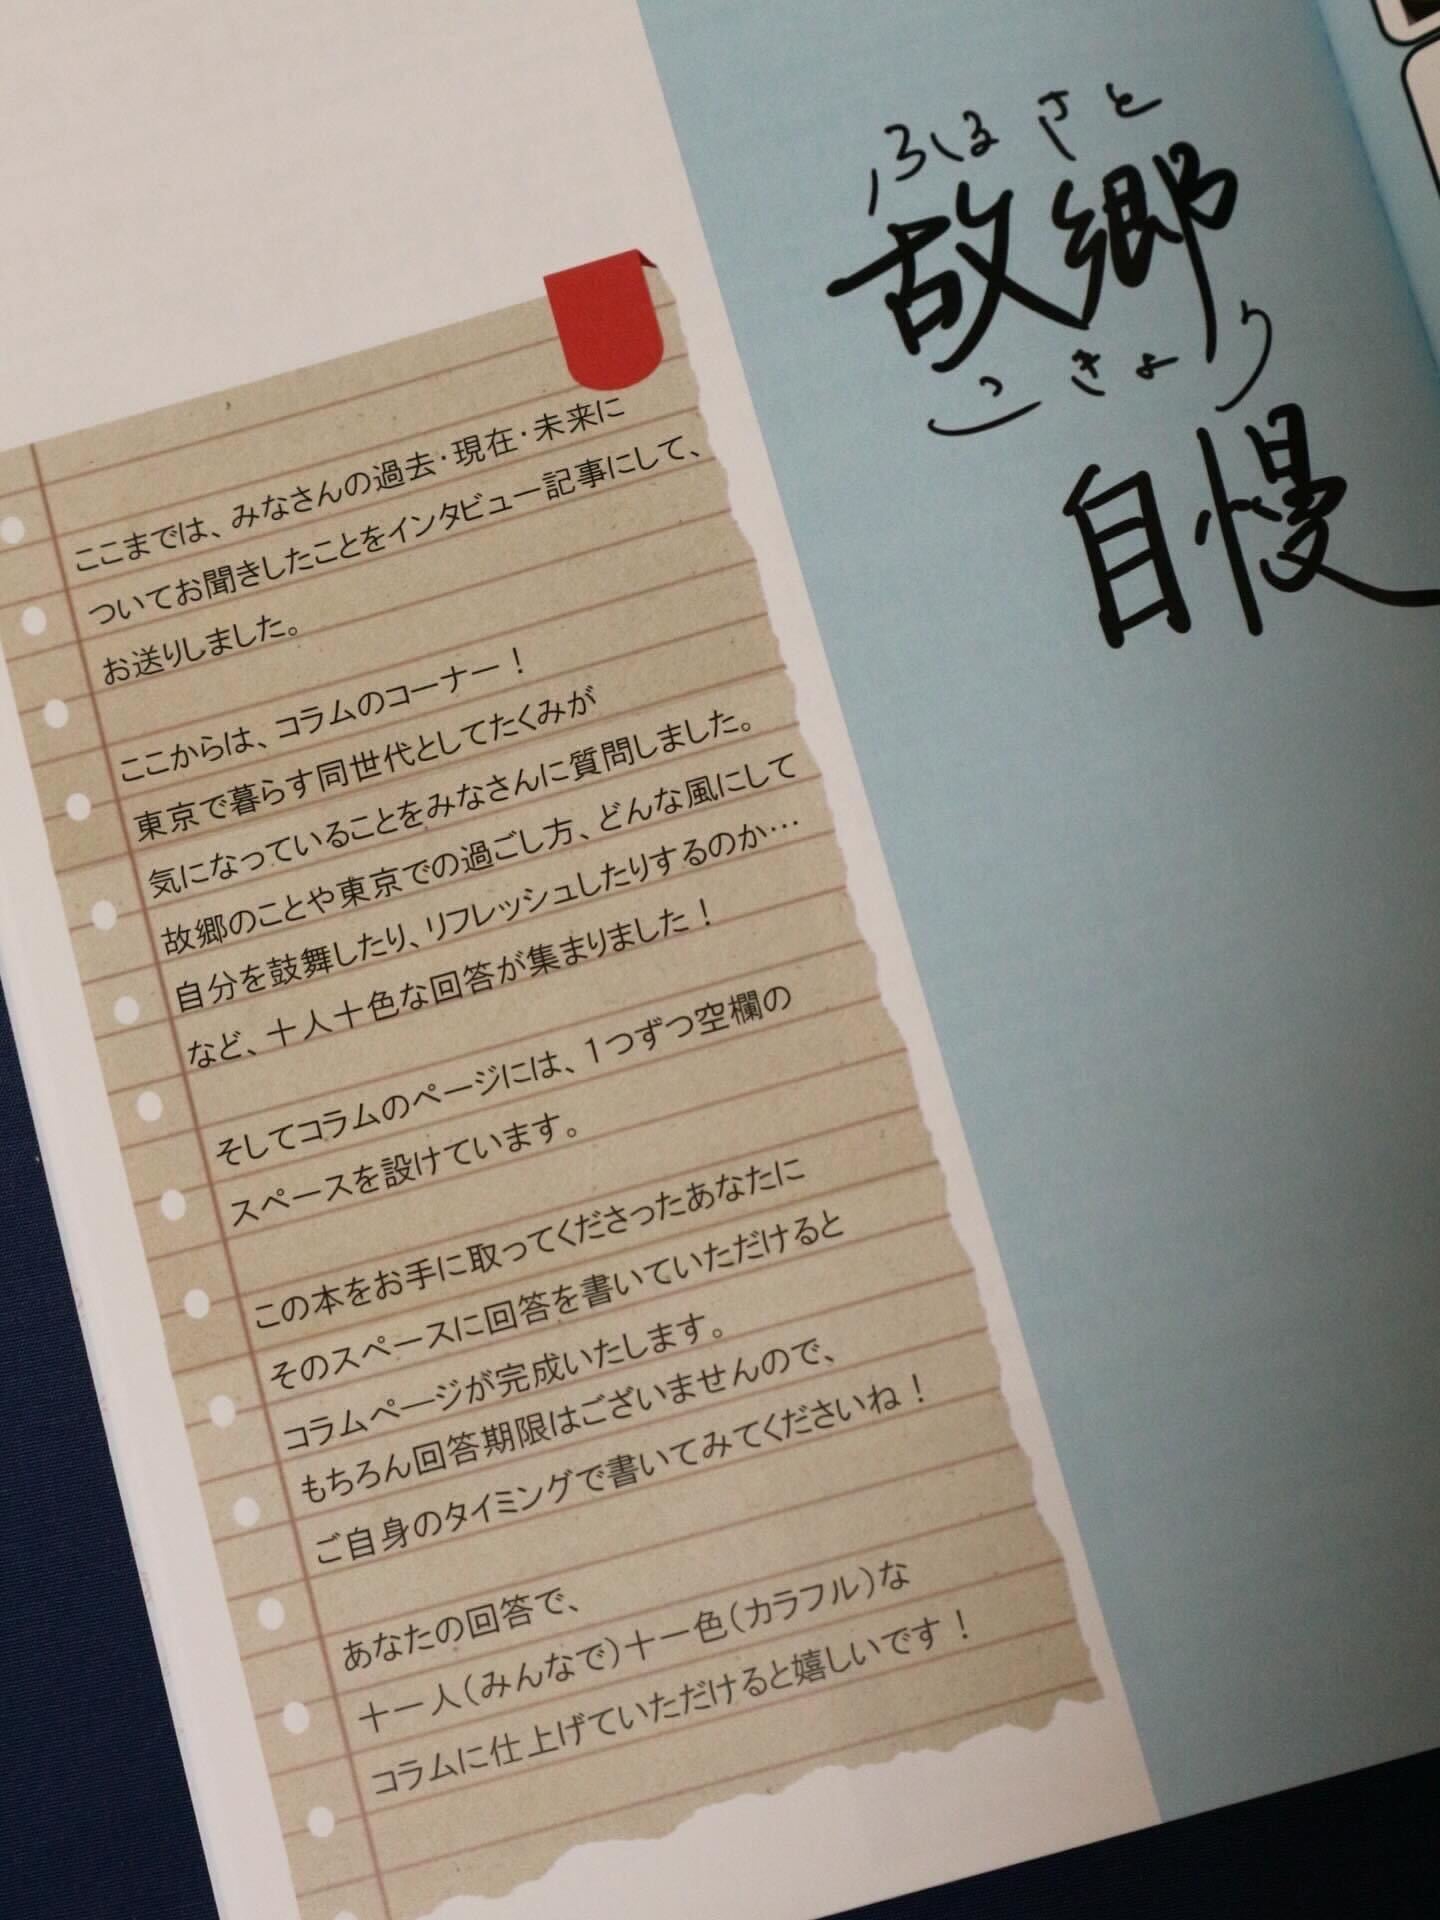 ここまでは、みなさんの過去・現在・未来に
ついてお聞きしたことをインタビュー記事にして、
お送りしました。
ここからは、コラムのコーナー！
東京で暮らす同世代としてたくみが
気になっていることをみなさんに質問しました。
故郷のことや東京での過ごし方、どんな風にして
自分を鼓舞したり、リフレッシュしたりするのか…
など、十人十色な回答が集まりました！
そしてコラムのページには、1つずつ空欄の
スペースを設けています。
この本をお手に取ってくださったあなたに
そのスペースに回答を書いていただけると
コラムページが完成いたします。
もちろん回答期限はございませんので、
ご自身のタイミングで書いてみてくださいね！
あなたの回答で、
十一人（みんなで）十一色（カラフル）な
コラムに仕上げていただけると嬉しいです！
ふるさと
故郷
こきょう
自慢